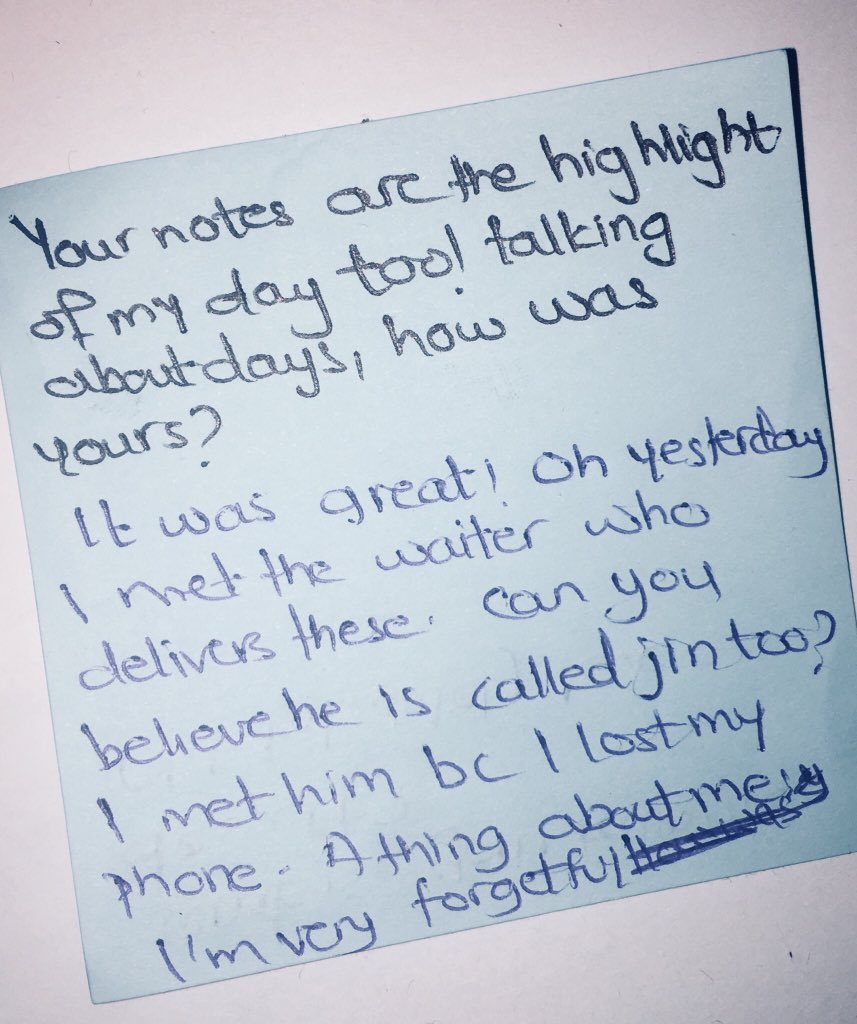 Your notes are the highlight
of my day too! talking
about days, how was
yours?
It was great! Oh yesterday
I met the waiter who
delivers these. can you
believe he is called jin too?
I met him bc I lost my
phone. A thing about me is
I'm very forgetful